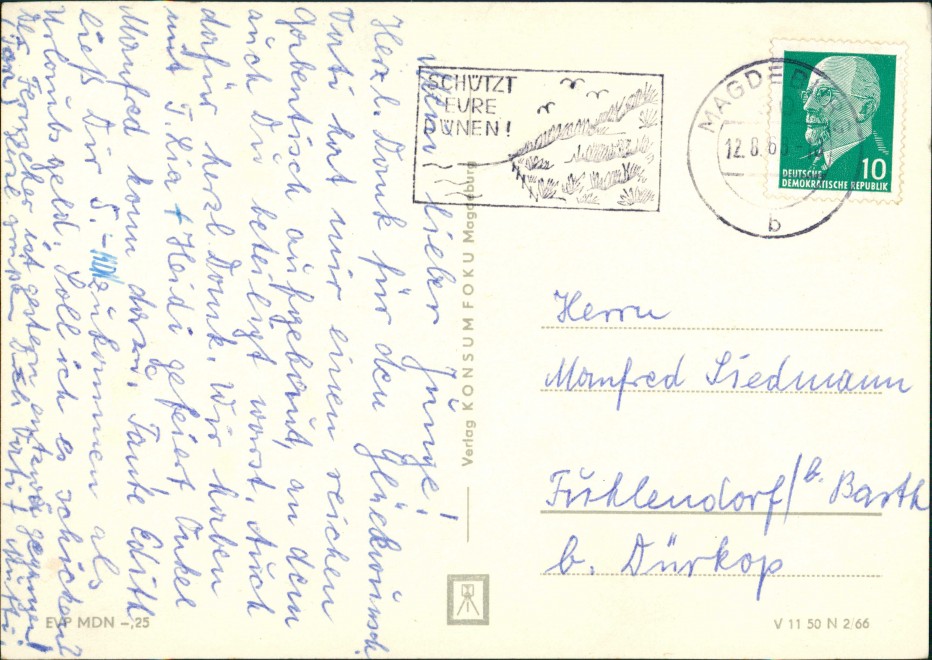 Mein lieber Junge!
Herzl. Dank für den Glückwunsch
Vati hat mir einen reichen
Gabentisch aufgebaut, an dem
auch Du beteiligt warst. Auch
dafür herzl. Dank. Wir haben
mit T. Lia + Heidi gefeiert. Onkel
Manfred kam dazu. Tante Edith
ließ Dir 5.- MDN zukommen als
Urlaubsgeld. Soll ich es schicken?
Der Fernseher ist gestern entzwei gegangen!
Vati Mutti
SCHÜTZT
EURE
DÜNEN!
MAGDEBURG
12.8.6
b
DEUTSCHE
DEMOKRATISCHE REPUBLIK
10
Verlag KONSUM FOKU Magdeburg
Herrn
Manfred Siedmann
Fuhlendorf/b. Barth
b. Dürkop
EVP MDN -,25
V 11 50 N 2/66